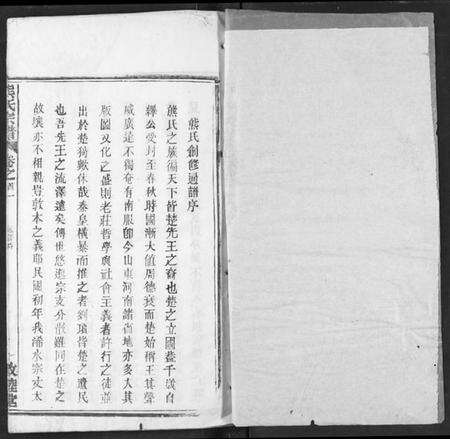 熊氏創修通譜序
熊氏之族徧天下皆楚先王之裔也楚之立國葢千歲自
繹公受封至春秋時國漸大值周德衰而楚始稱王其聲
威廣遠不獨奄有南服卽今山東河南諸省地亦多入其
版圖文化之盛則老莊哲學與社會主義者許行之徒並
出於楚猗歟休哉秦皇橫暴而摧之者劉項皆楚之遺民
也吾先王之流澤遠矣傳世悠遠宗支分散雖同在楚之
故壤亦不相親豈敦本之義耶民國初年我浠水宗丈太
熊氏宗譜
卷之首一
敦睦堂